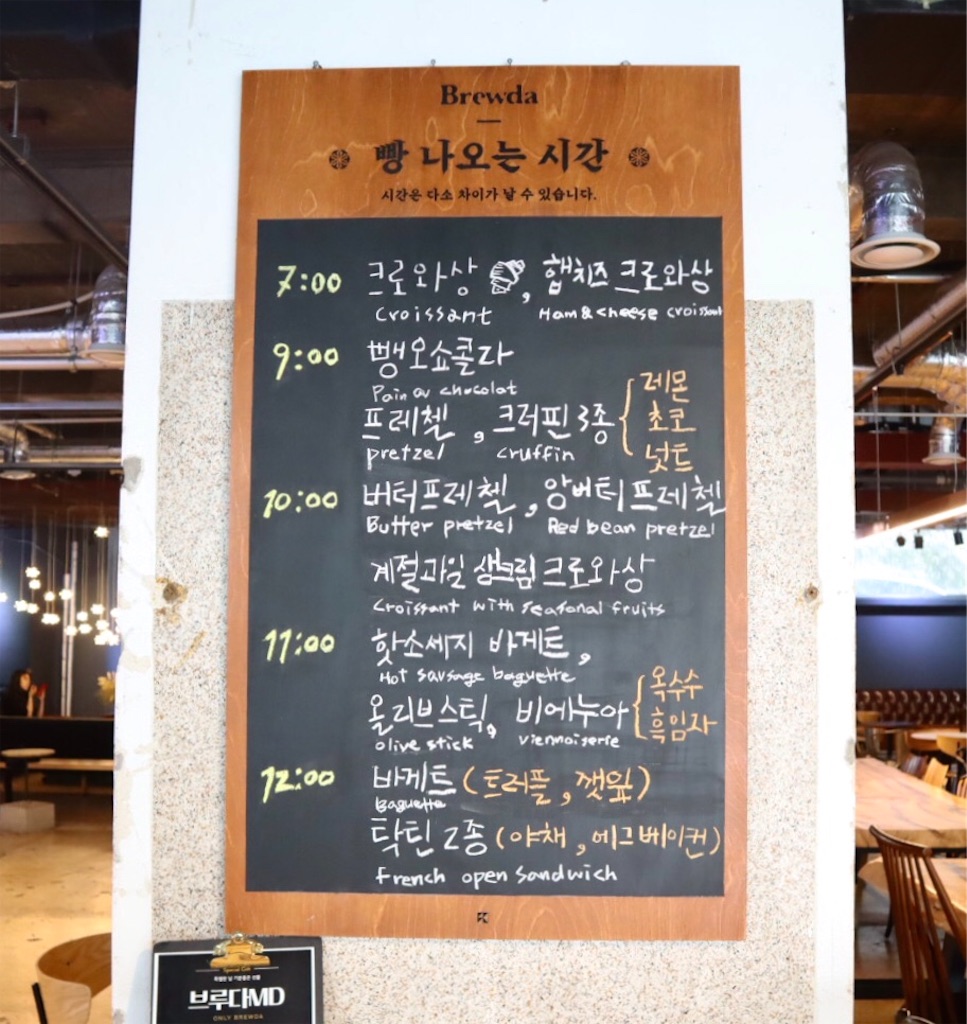 Brewda
빵 나오는 시간
시간은 다소 차이가 날 수 있습니다.
7:00 크로와상, 햄치즈 크로와상
Croissant Ham & cheese croissant
9:00 뺑오쇼콜라
Pain au chocolat
프레첼, 크러핀 3종 레몬 초코 넛트
pretzel cruffin
10:00 버터프레첼, 앙버터프레첼
Butter pretzel Red bean pretzel
계절과일 생크림 크로와상
Croissant with seasonal fruits
11:00 핫소세지 바게트,
Hot sausage baguette
올리브스틱, 비에누아 옥수수 흑임자
olive stick viennoiserie
12:00 바게트 (트러플, 깻잎)
Baguette
탁틴 2종 (야채, 에그베이컨)
French open sandwich
Special Gift
브루다MD
ONLY BREWDA